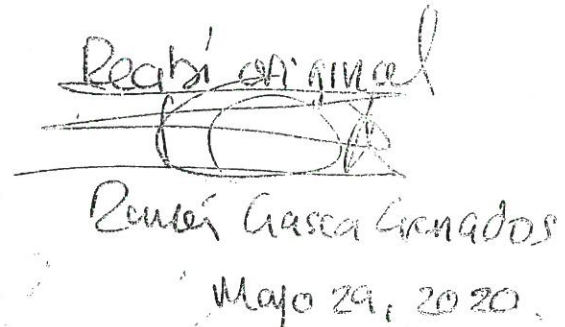 Recibí original
Gasca Granados
Mayo 29, 2020.